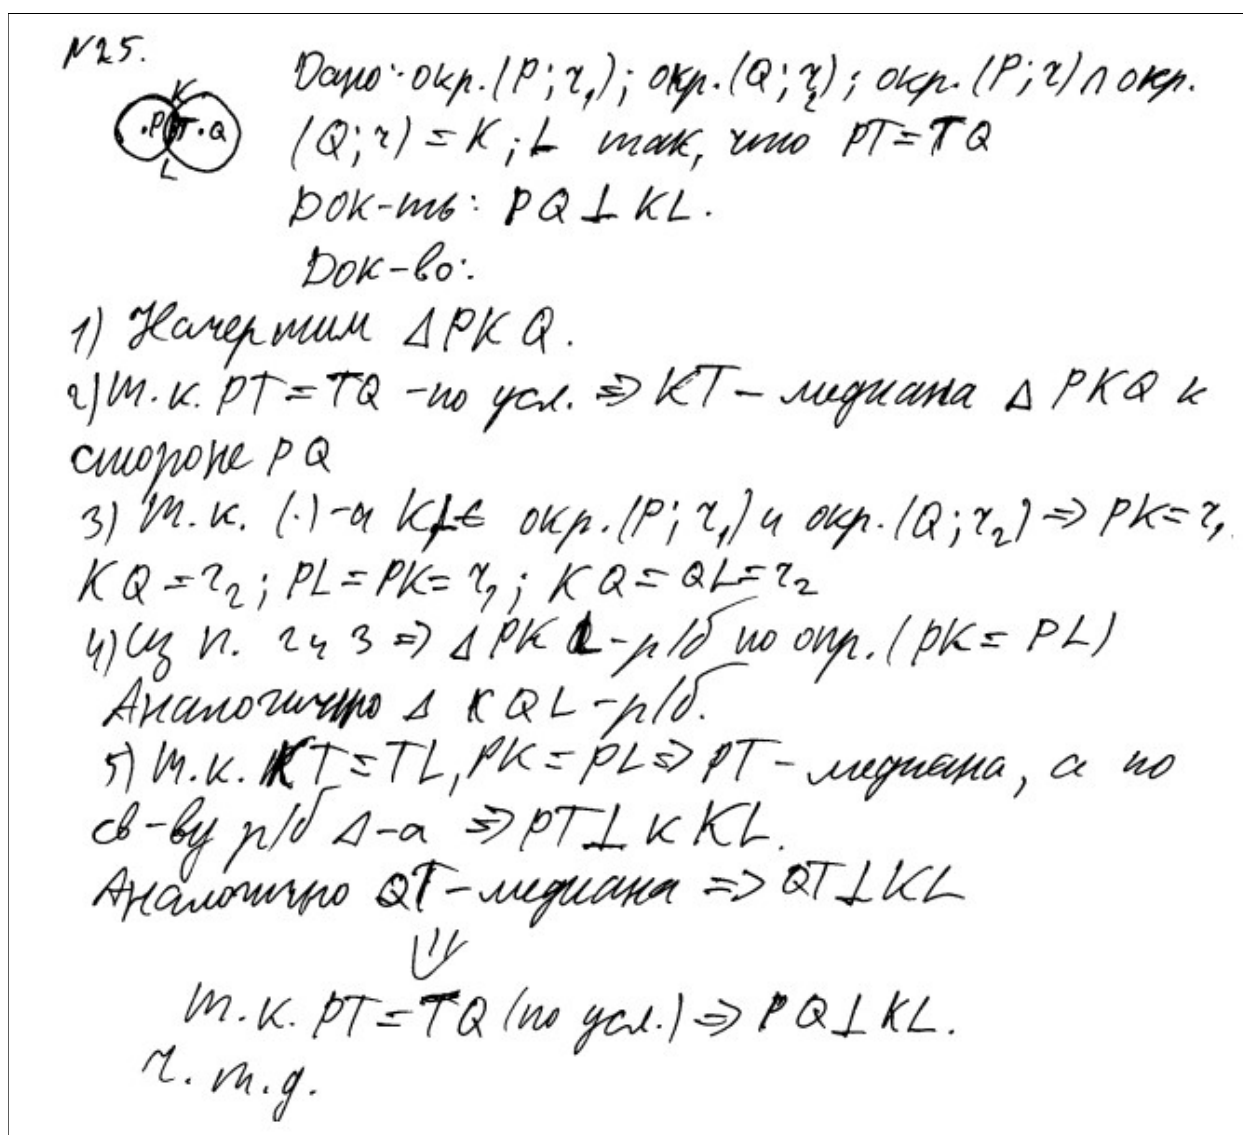 №25.
K
P T Q
L
Дано: окр.(P; r₁); окр.(Q; r₂); окр.(P; r) ∩ окр.
(Q; r) = K; L так, что PT = TQ
Док-ть: PQ ⊥ KL.
Док-во:
1) Начертим Δ PKQ.
2) т.к. PT = TQ - по усл. ⇒ KT - медиана Δ PKQ к
стороне PQ
3) т.к. (·)-и K, L ∈ окр.(P; r₁) и окр.(Q; r₂) ⇒ PK = r₁
KQ = r₂; PL = PK = r₁; KQ = QL = r₂
4) Из п. 2 и 3 ⇒ Δ PKL - р/б по опр. (PK = PL)
Аналогично Δ KQL - р/б.
5) т.к. KT = TL, PK = PL ⇒ PT - медиана, а по
св-ву р/б Δ-а ⇒ PT ⊥ к KL.
Аналогично QT - медиана ⇒ QT ⊥ KL
⇓
т.к. PT = TQ (по усл.) ⇒ PQ ⊥ KL.
ч.т.д.